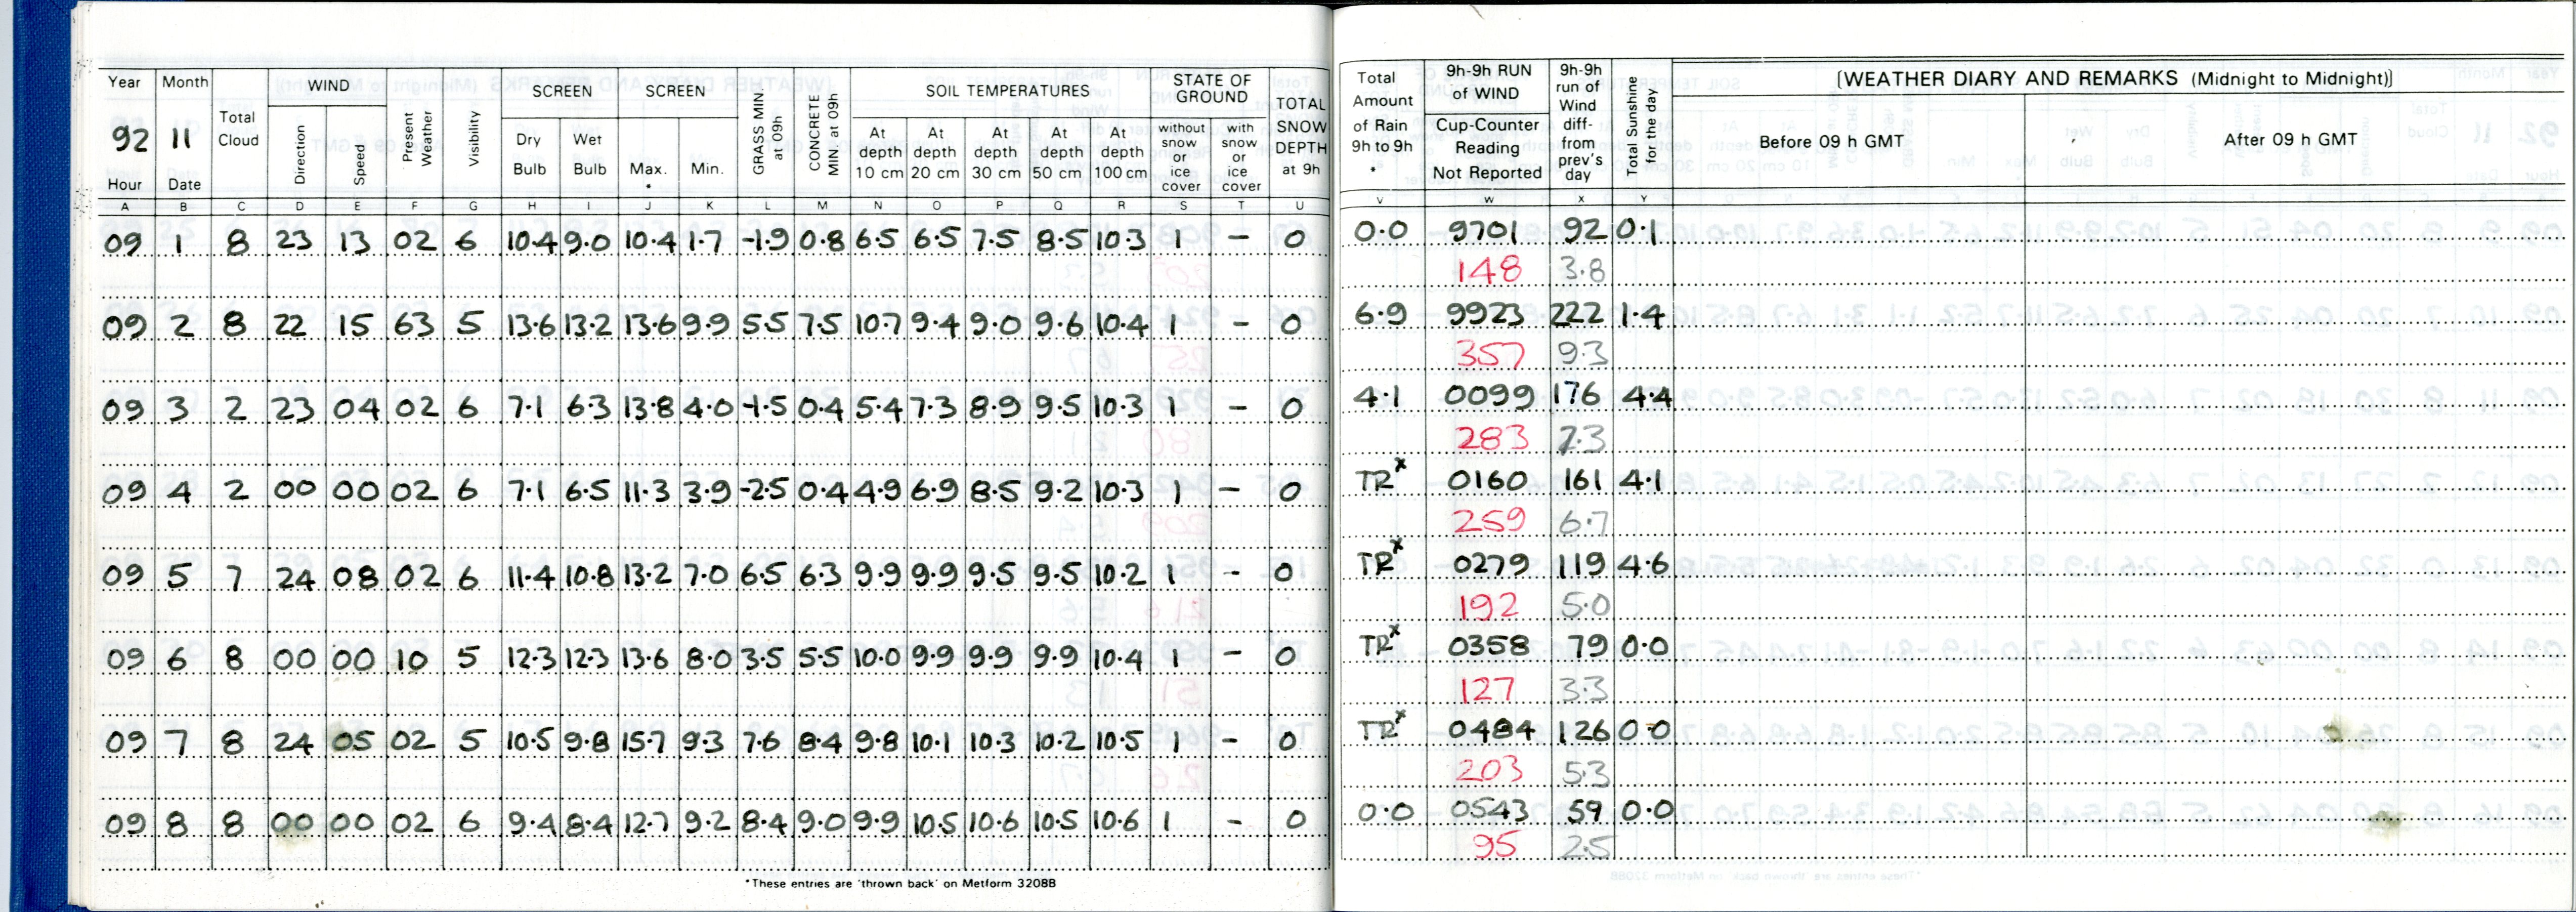 Year Month Total Cloud WIND Present Weather Visibility SCREEN SCREEN GRASS MIN at 09h CONCRETE MIN at 09h SOIL TEMPERATURES STATE OF GROUND TOTAL SNOW DEPTH at 9h
92 11 Direction Speed Dry Bulb Wet Bulb Max. * Min. At depth 10 cm At depth 20 cm At depth 30 cm At depth 50 cm At depth 100 cm without snow or ice cover with snow or ice cover
Hour Date
Total Amount of Rain 9h to 9h * 9h-9h RUN of WIND Cup-Counter Reading Not Reported 9h-9h run of Wind diff- from prev's day Total Sunshine for the day [WEATHER DIARY AND REMARKS (Midnight to Midnight)]
Before 09 h GMT After 09 h GMT
A B C D E F G H I J K L M N O P Q R S T U V W X Y
09 1 8 23 13 02 6 10.4 9.0 10.4 1.7 -1.9 0.8 6.5 6.5 7.5 8.5 10.3 1 - 0 0.0 9701 92 0.1
148 3.8
09 2 8 22 15 63 5 13.6 13.2 13.6 9.9 5.5 7.5 10.7 9.4 9.0 9.6 10.4 1 - 0 6.9 9923 222 1.4
357 9.3
09 3 2 23 04 02 6 7.1 6.3 13.8 4.0 -1.5 0.4 5.4 7.3 8.9 9.5 10.3 1 - 0 4.1 0099 176 4.4
283 7.3
09 4 2 00 00 02 6 7.1 6.5 11.3 3.9 -2.5 0.4 4.9 6.9 8.5 9.2 10.3 1 - 0 TR* 0160 161 4.1
259 6.7
09 5 7 24 08 02 6 11.4 10.8 13.2 7.0 6.5 6.3 9.9 9.9 9.5 9.5 10.2 1 - 0 TR* 0279 119 4.6
192 5.0
09 6 8 00 00 10 5 12.3 12.3 13.6 8.0 3.5 5.5 10.0 9.9 9.9 9.9 10.4 1 - 0 TR* 0358 79 0.0
127 3.3
09 7 8 24 05 02 5 10.5 9.8 15.7 9.3 7.6 8.4 9.8 10.1 10.3 10.2 10.5 1 - 0 TR* 0484 126 0.0
203 5.3
09 8 8 00 00 02 6 9.4 8.4 12.7 9.2 8.4 9.0 9.9 10.5 10.6 10.5 10.6 1 - 0 0.0 0543 59 0.0
95 2.5
*These entries are 'thrown back' on Metform 3208B